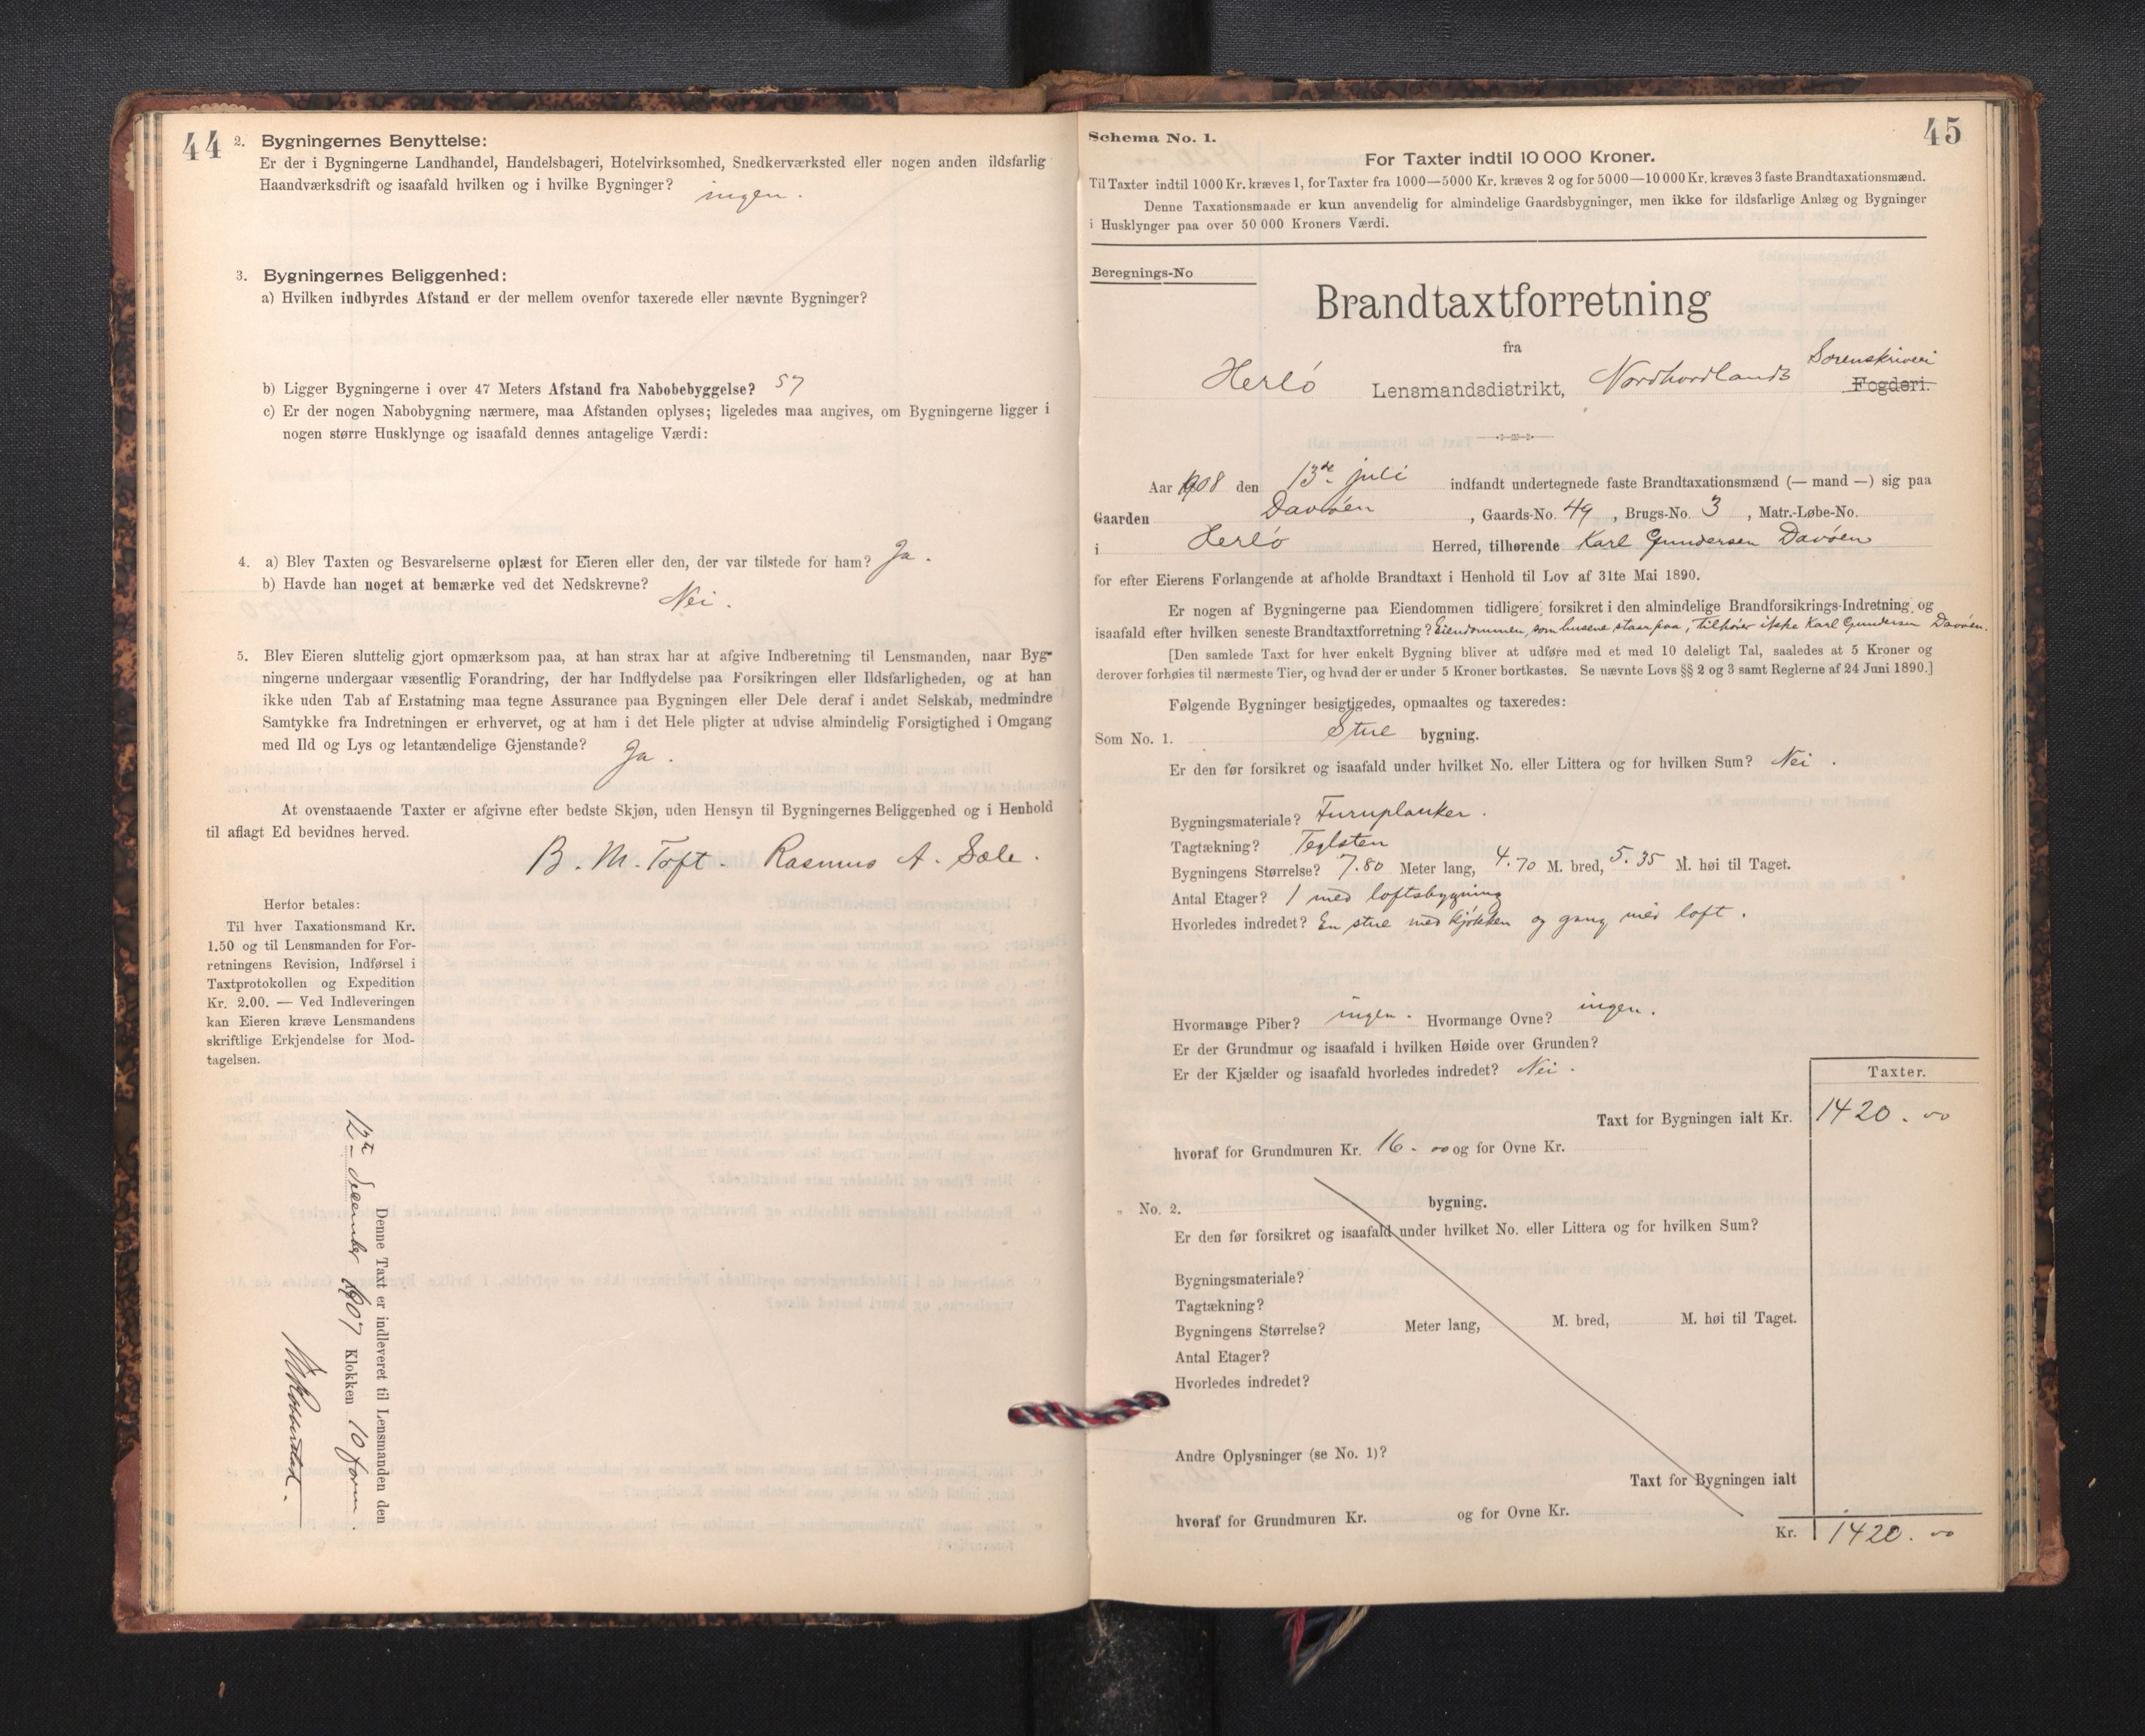 44
2. Bygningernes Benyttelse:
Er der i Bygningerne Landhandel, Handelsbageri, Hotelvirksomhed, Snedkerværksted eller nogen anden ildsfarlig
Haandværksdrift og isaafald hvilken og i hvilke Bygninger? ingen.
3. Bygningernes Beliggenhed:
a) Hvilken indbyrdes Afstand er der mellem ovenfor taxerede eller nævnte Bygninger?
b) Ligger Bygningerne i over 47 Meters Afstand fra Nabobebyggelse? 57
c) Er der nogen Nabobygning nærmere, maa Afstanden oplyses; ligeledes maa angives, om Bygningerne ligger i
nogen større Husklynge og isaafald dennes antagelige Værdi:
4. a) Blev Taxten og Besvarelserne oplæst for Eieren eller den, der var tilstede for ham? Ja.
b) Havde han noget at bemærke ved det Nedskrevne? Nei.
5. Blev Eieren sluttelig gjort opmærksom paa, at han strax har at afgive Indberetning til Lensmanden, naar Byg-
ningerne undergaar væsentlig Forandring, der har Indflydelse paa Forsikringen eller Ildsfarligheden, og at han
ikke uden Tab af Erstatning maa tegne Assurance paa Bygningen eller Dele deraf i andet Selskab, medmindre
Samtykke fra Indretningen er erhvervet, og at han i det Hele pligter at udvise almindelig Forsigtighed i Omgang
med Ild og Lys og letantændelige Gjenstande? Ja.
At ovenstaaende Taxter er afgivne efter bedste Skjøn, uden Hensyn til Bygningernes Beliggenhed og i Henhold
til aflagt Ed bevidnes herved.
B. M. Toft. Rasmus A. Sæle.
Herfor betales:
Til hver Taxationsmand Kr.
1.50 og til Lensmanden for For-
retningens Revision, Indførsel i
Taxtprotokollen og Expedition
Kr. 2.00. — Ved Indleveringen
kan Eieren kræve Lensmandens
skriftlige Erkjendelse for Mod-
tagelsen.
Denne Taxt er indleveret til Lensmanden den
12te 1907 Klokken 10 form
45
Schema No. 1.
For Taxter indtil 10 000 Kroner.
Til Taxter indtil 1000 Kr. kræves 1, for Taxter fra 1000—5000 Kr. kræves 2 og for 5000—10 000 Kr. kræves 3 faste Brandtaxationsmænd.
Denne Taxationsmaade er kun anvendelig for almindelige Gaardsbygninger, men ikke for ildsfarlige Anlæg og Bygninger
i Husklynger paa over 50 000 Kroners Værdi.
Beregnings-No
Brandtaxtforretning
fra
Herlö Lensmandsdistrikt, Nordhordlands Sorenskriveri Fogderi.
Aar 1908 den 13de juli indfandt undertegnede faste Brandtaxationsmænd (— mand —) sig paa
Gaarden Davöen, Gaards-No. 49, Brugs-No. 3, Matr.-Løbe-No.
i Herlö Herred, tilhørende Karl Gundersen Davöen
for efter Eierens Forlangende at afholde Brandtaxt i Henhold til Lov af 31te Mai 1890.
Er nogen af Bygningerne paa Eiendommen tidligere forsikret i den almindelige Brandforsikrings-Indretning og
isaafald efter hvilken seneste Brandtaxtforretning? Eiendommen, som husene staar paa, tilhører ikke Karl Gundersen Davöen.
[Den samlede Taxt for hver enkelt Bygning bliver at udføre med et med 10 deleligt Tal, saaledes at 5 Kroner og
derover forhøies til nærmeste Tier, og hvad der er under 5 Kroner bortkastes. Se nævnte Lovs §§ 2 og 3 samt Reglerne af 24 Juni 1890.]
Følgende Bygninger besigtigedes, opmaaltes og taxeredes:
Som No. 1. Stue bygning.
Er den før forsikret og isaafald under hvilket No. eller Littera og for hvilken Sum? Nei.
Bygningsmateriale? Furuplanker.
Tagtækning? Teglsten
Bygningens Størrelse? 7.80 Meter lang, 4.70 M. bred, 5.35 M. høi til Taget.
Antal Etager? 1 med loftsbygning
Hvorledes indredet? En stue med kjökken og gang med loft.
Hvormange Piber? ingen. Hvormange Ovne? ingen.
Er der Grundmur og isaafald i hvilken Høide over Grunden?
Er der Kjælder og isaafald hvorledes indredet? Nei.
Taxter.
Taxt for Bygningen ialt Kr. 1420.00
hvoraf for Grundmuren Kr. 16.00 og for Ovne Kr.
" No. 2. bygning.
Er den før forsikret og isaafald under hvilket No. eller Littera og for hvilken Sum?
Bygningsmateriale?
Tagtækning?
Bygningens Størrelse? Meter lang, M. bred, M. høi til Taget.
Antal Etager?
Hvorledes indredet?
Andre Oplysninger (se No. 1)?
Taxt for Bygningen ialt
hvoraf for Grundmuren Kr. og for Ovne Kr.
Kr. 1420.00